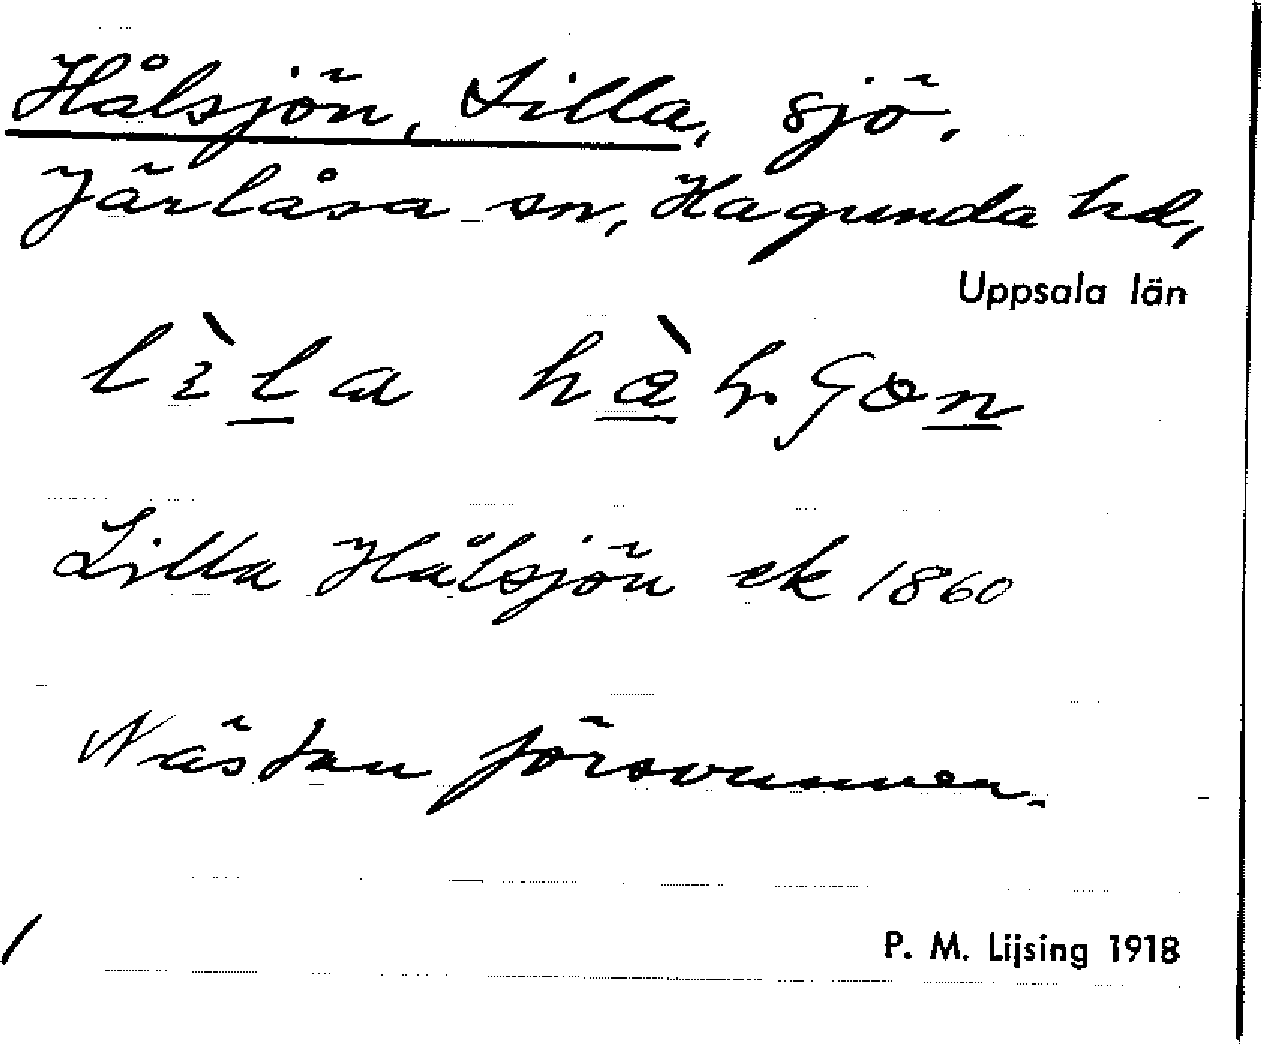 Hålsjön, Lilla, sjö.
Järlåsa sn, Hagunda hd,
Uppsala län
Lilla Hålsjön ek 1860
Nästan försvunnen.
P. M. Lijsing 1918